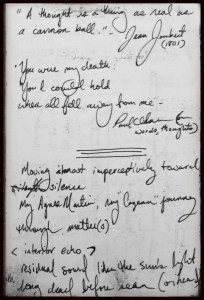 "A thought is a thing as real as
a cannon ball."
Joan Joubert
(1801)
"You were my death:
You I could hold
when all fell away from me –
Paul Celan
words, thoughts)
Moving almost imperceptively toward
silence
My Agnes Martin, my journey
through matter(s)
< interior echo >
residual sound like the sun's light
being dead before seen (or heard)